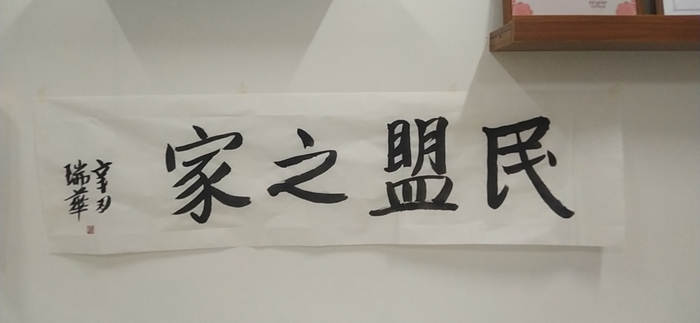 民盟之家
辛丑
瑞華